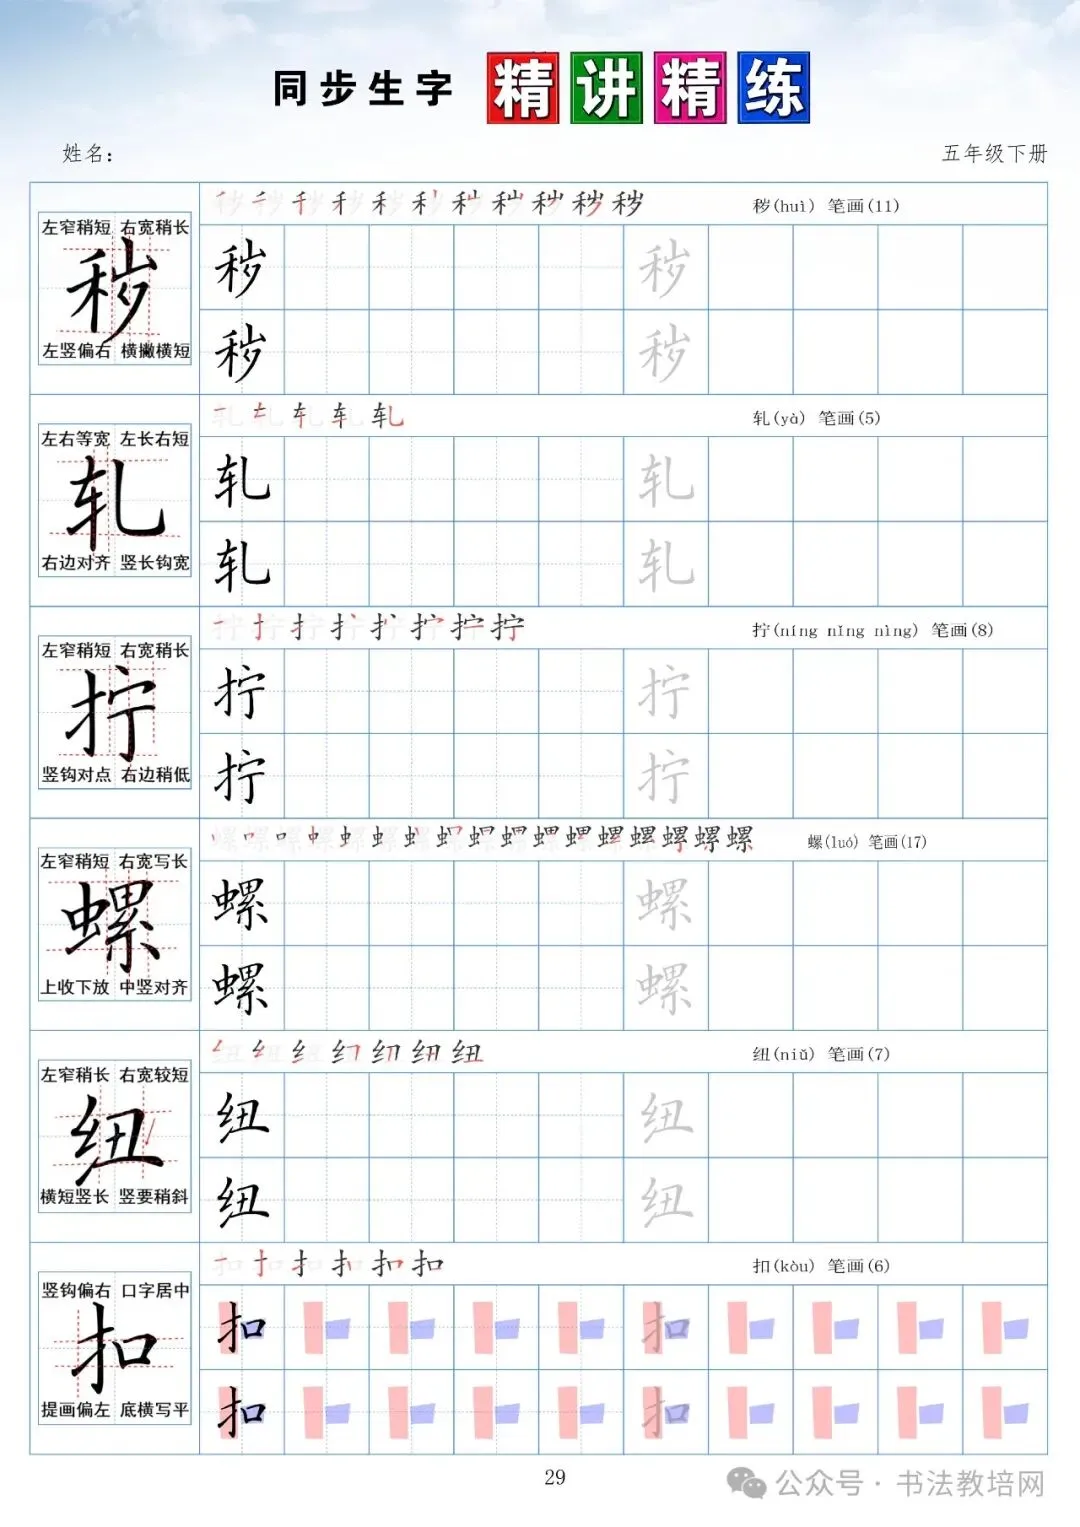 同步生字 精讲精练
姓名：
五年级下册
左窄稍短 右宽稍长
秽
左竖偏右 横撇横短
秽(huì) 笔画(11)
秽 秽
秽 秽
左右等宽 左长右短
轧
右边对齐 竖长钩宽
轧(yà) 笔画(5)
轧 轧
轧 轧
左窄稍短 右宽稍长
拧
竖钩对点 右边稍低
拧(níng nǐng nìng) 笔画(8)
拧 拧
拧 拧
左窄稍短 右宽写长
螺
上收下放 中竖对齐
螺(luó) 笔画(17)
螺 螺
螺 螺
左窄稍长 右宽较短
纽
横短竖长 竖要稍斜
纽(niǔ) 笔画(7)
纽 纽
纽 纽
竖钩偏右 口字居中
扣
提画偏左 底横写平
扣(kòu) 笔画(6)
扣 扣
扣 扣
29
公众号·书法教培网